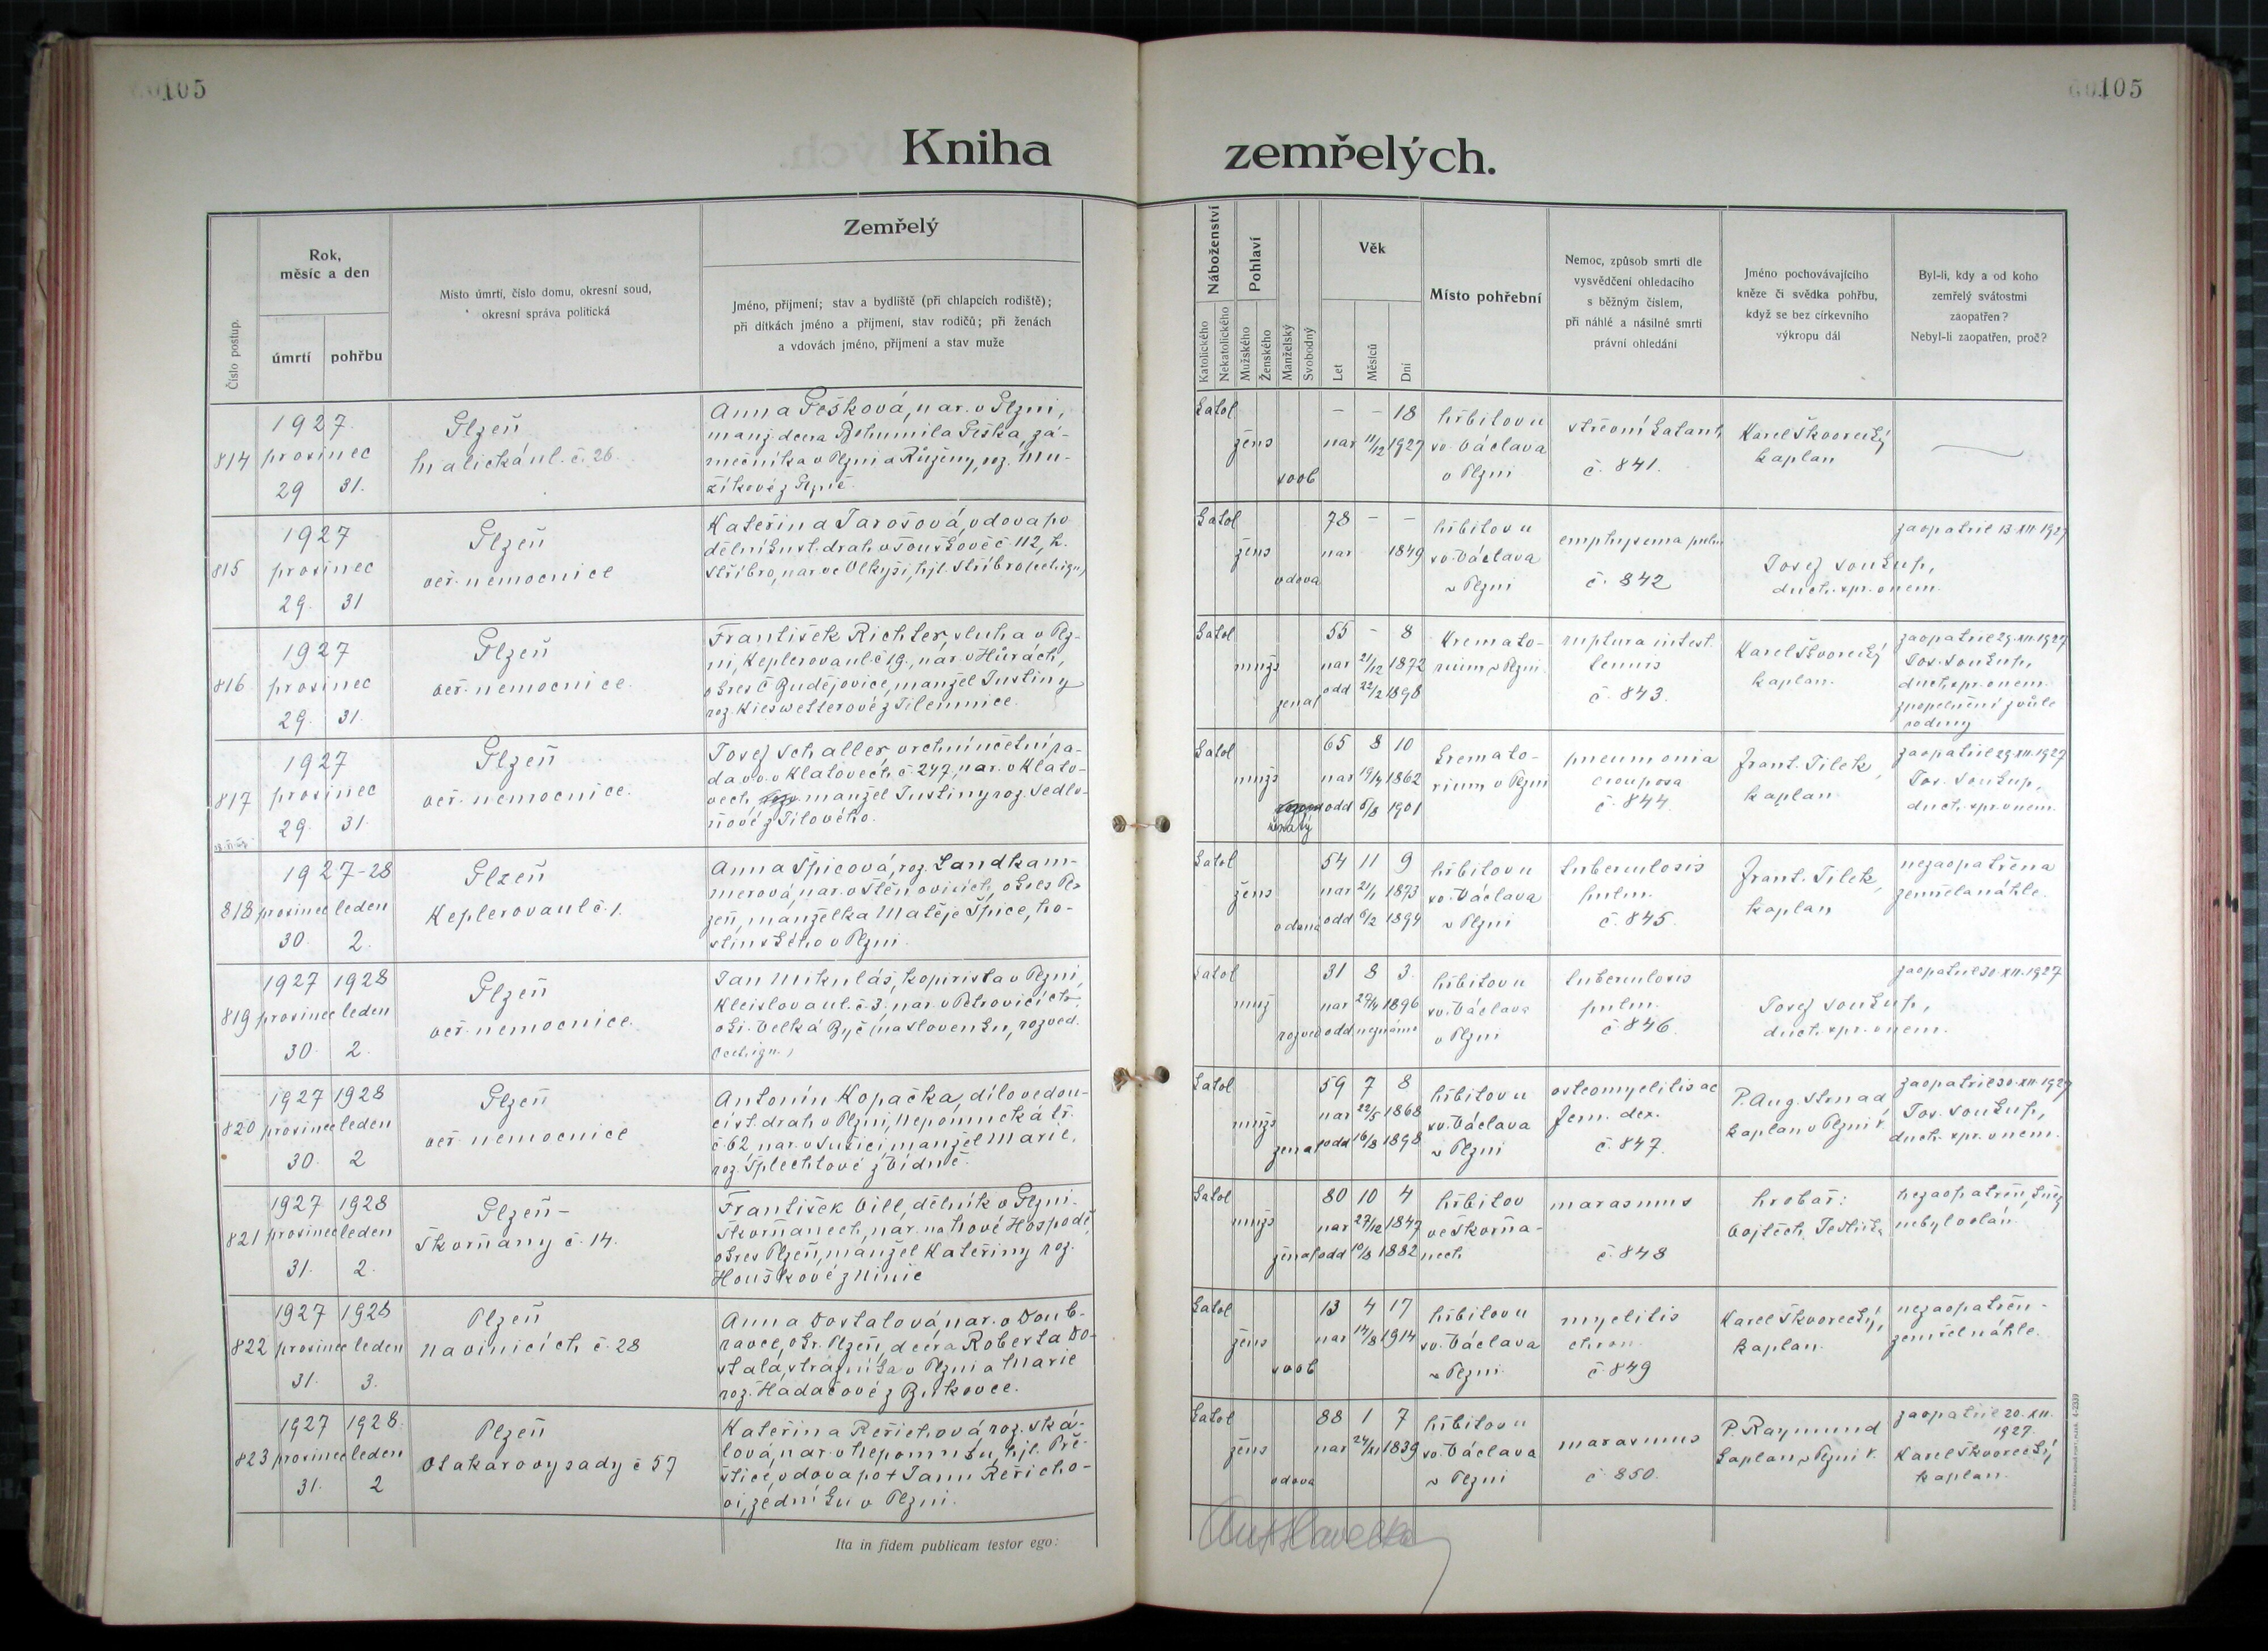 105
105
Kniha zemřelých.
Číslo postup.
Rok,
měsíc a den
úmrtí
pohřbu
Místo úmrtí, číslo domu, okresní soud,
okresní správa politická
Zemřelý
Jméno, příjmení; stav a bydliště (při chlapcích rodiště);
při dítkách jméno a příjmení, stav rodičů; při ženách
a vdovách jméno, příjmení a stav muže
Náboženství
Katolického
Nekatolického
Pohlaví
Mužského
Ženského
Manželský
Svobodný
Věk
Let
Měsíců
Dní
Místo pohřební
Nemoc, způsob smrti dle
vysvědčení ohledacího
s běžným číslem,
při náhlé a násilné smrti
právní ohledání
Jméno pochovávajícího
kněze či svědka pohřbu,
když se bez církevního
výkropu dál
Byl-li, kdy a od koho
zemřelý svátostmi
zaopatřen?
Nebyl-li zaopatřen, proč?
814
1927
prosinec
29 31.
Plzeň
č. 26.
Anna Pešková, nar. v Plzni,
manž. dcera Bohumila Peška, zá-
mečníka v Plzni a Růženy, roz. Mu-
žíkové z Plzně.
katol
žens
svob
- - 18
nar 11/12 1927
hřbitov u
sv. Václava
v Plzni
střevní katarrh
č. 841.
Karel Škvorecký
kaplan
815
1927
prosinec
29. 31
Plzeň
veř. nemocnice
Kateřina Jarošová, vdova po
dělníku st. drah v č. 112, h.
Stříbro, nar. ve hjt. Stříbro
katol
žens
vdova
78 - -
nar 1849
hřbitov u
sv. Václava
v Plzni
emphysema pulm
č. 842
Josef Soukup,
duch. spr. v nem.
zaopatřil 13.XII.1927
816.
1927
prosinec
29. 31.
Plzeň
veř. nemocnice.
František Richter, sluha v Plz-
ni, Keplerova ul. č 19., nar. v Hůrách,
okres Č Budějovice, manžel Justiny
roz. Kieswetterové z Jilemnice.
katol
mužs
ženat
55 - 8
nar 21/12 1872
odd 22/2 1898
Kremato-
rium v Plzni.
ruptura intest.
tenuis
č. 843.
Karel Škvorecký
kaplan.
zaopatřil 29.XII.1927
Jos. Soukup,
duch. spr. v nem.
zpopelnění z vůle
rodiny
817
1927
prosinec
29. 31.
Plzeň
veř. nemocnice.
Josef Schaller, vrchní účetní ra-
da v. v. v Klatovech č. 247, nar. v Klato-
vech, manžel Justiny roz. Sedlo-
ňové z Jílového.
katol
mužs
ženatý
65 8 10
nar 19/4 1862
odd 5/8 1901
kremato-
rium v Plzni
pneumonia
crouposa
č. 844
Frant. Jílek,
kaplan
zaopatřil 29.XII.1927
Jos. Soukup,
duch. spr. v nem.
818
1927-28
prosinec leden
30. 2.
Plzeň
Keplerova ul č. 1.
Anna Špicová, roz. Landkam-
merová, nar. v Štěnovicích, okres Pl-
zeň, manželka Matěje Špice, ho-
stinského v Plzni.
katol
žens
vdaná
54 11 9
nar 21/1 1873
odd 6/2 1894
hřbitov u
sv. Václava
v Plzni
tuberculosis
pulm.
č. 845.
Frant. Jílek,
kaplan
nezaopatřena
zemřela náhle.
819
1927 1928
prosinec leden
30. 2.
Plzeň
veř. nemocnice.
Jan Mikuláš, kopirista v Plzni,
Kleislova ul. č. 3, nar. v Petrovicích
ok. Velká Byč (na Slovensku, rozved.
katol
muž
rozved
31 8 3.
nar 27/4 1896
odd neznámo
hřbitov u
sv. Václava
v Plzni
tuberculosis
pulm.
č 846.
Josef Soukup,
duch. spr. v nem.
zaopatřil 30.XII.1927
820
1927 1928
prosinec leden
30. 2
Plzeň
veř. nemocnice
Antonín Kopačka, dílovedou-
cí st. drah v Plzni, Nepomucká tř.
č. 62, nar. v Sušici, manžel Marie,
roz. Šplechtové z Vídně.
katol
mužs
ženat
59 7 8
nar 22/5 1868
odd 16/8 1898
hřbitov u
sv. Václava
v Plzni
osteomyelitis ac
fem. dex.
č. 847.
P. Aug. Strnad
kaplan v Plzni V.
zaopatřil 30.XII.1927
Jos. Soukup,
duch. spr. v nem.
821
1927 1928
prosinec leden
31. 2.
Plzeň-
Škorňany č. 14.
František Vill, dělník v Plzni-
Škorňanech, nar. na Nové Hospodě,
okres Plzeň, manžel Kateřiny roz.
Houškové z Ninic
katol
mužs
ženat
80 10 4
nar 27/12 1847
odd 10/8 1882
hřbitov
ve Škorňa-
nech
marasmus
č. 848
hrobař:
Vojtěch
nezaopatřen, kněz
nebyl volán.
822
1927 1928
prosinec leden
31. 3.
Plzeň
Na vinicích č. 28
Anna Dostalová, nar. v Doub-
ravce, okr. Plzeň, dcera Roberta Do-
stala, strážníka v Plzni a Marie
roz. Hadačové z Bukovce.
katol
žens
svob
13 4 17
nar 14/8 1914
hřbitov u
sv. Václava
v Plzni.
myelitis
chron.
č 849
Karel Škvorecký,
kaplan.
nezaopatřen-
zemřel náhle.
823
1927 1928.
prosinec leden
31. 2
Plzeň
Otakarovy sady č 57
Kateřina Řeřichová, roz. Ská-
lová, nar. v Nepomuku, hjt. Pře-
štice, vdova po † Janu Řeřicho-
vi, zedníku v Plzni.
katol
žens
vdova
88 1 7
nar 24/XI 1839
hřbitov u
sv. Václava
v Plzni
marasmus
č 850.
P. Raymund
kaplan v Plzni V.
zaopatřil 20.XII.
1927.
Karel Škvorecký,
kaplan.
Ita in fidem publicam testor ego:
Ant Havelka